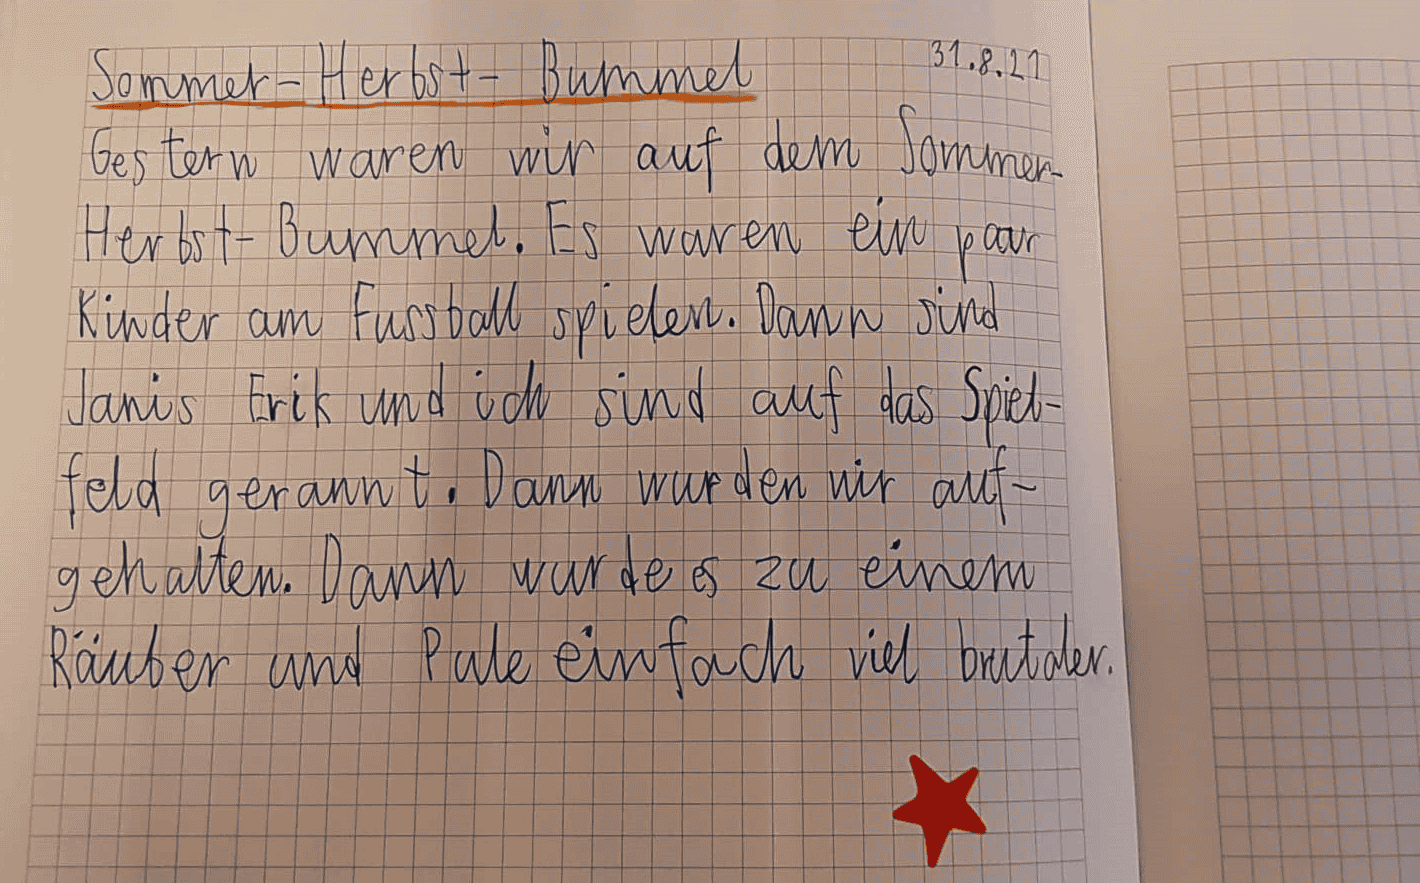 Sommer-Herbst-Bummel 31.8.21
Gestern waren wir auf dem Sommer-
Herbst-Bummel. Es waren ein paar
Kinder am Fussball spielen. Dann sind
Janis Erik und ich sind auf das Spiel-
feld gerannt. Dann wurden wir auf-
gehalten. Dann wurde es zu einem
Räuber und Pule einfach viel brutaler.